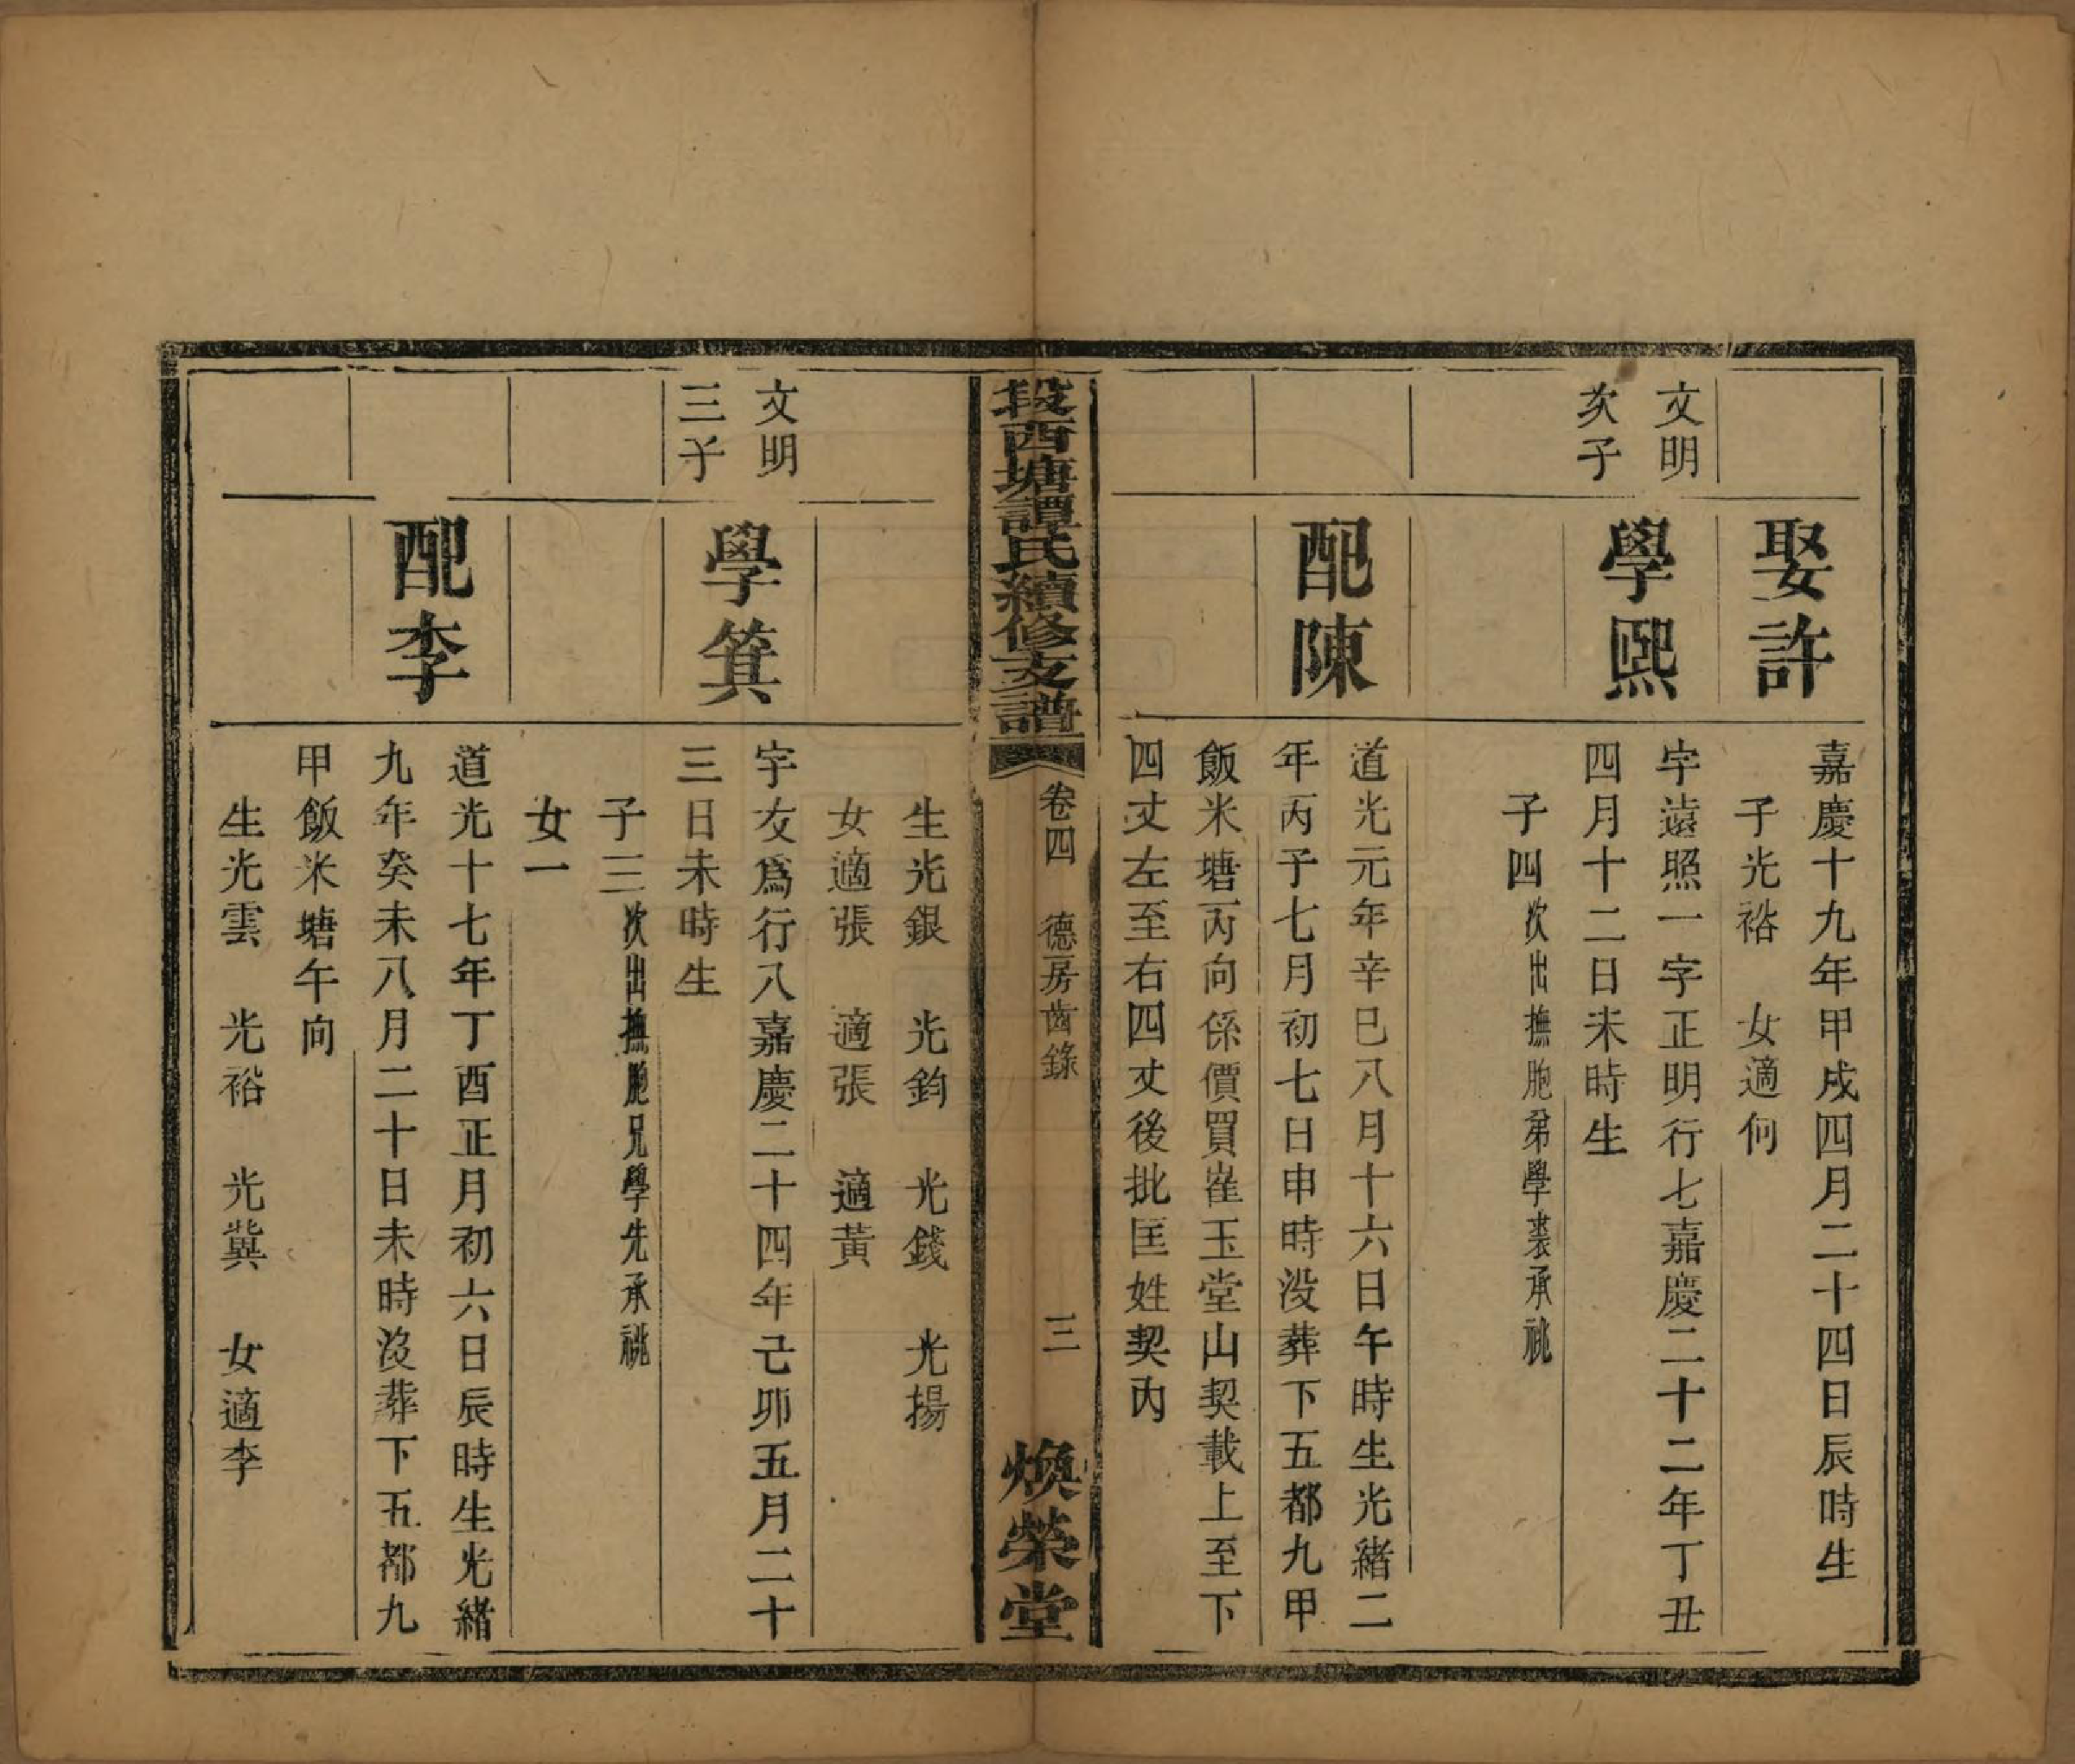 娶許
嘉慶十九年甲戌四月二十四日辰時生
子光裕　女適何
文明
次子
學熈
字遠照一字正明行七嘉慶二十二年丁丑
四月十二日未時生
子四次出撫胞弟學裘承祧
配陳
道光元年辛巳八月十六日午時生光緒二
年丙子七月初七日申時没葬下五都九甲
飯米塘丙向係價買崔玉堂山契載上至下
四丈左至右四丈後批匡姓契内
段西塘譚氏續修支譜
卷四　德房齒錄
三
煥榮堂
生光銀　光鈞　光錢　光揚
女適張　適張　適黃
文明
三子
學箕
字友爲行八嘉慶二十四年己卯五月二十
三日未時生
子三次出撫胞兄學先承祧
女一
配李
道光十七年丁酉正月初六日辰時生光緒
九年癸未八月二十日未時没葬下五都九
甲飯米塘午向
生光雲　光裕　光冀　女適李